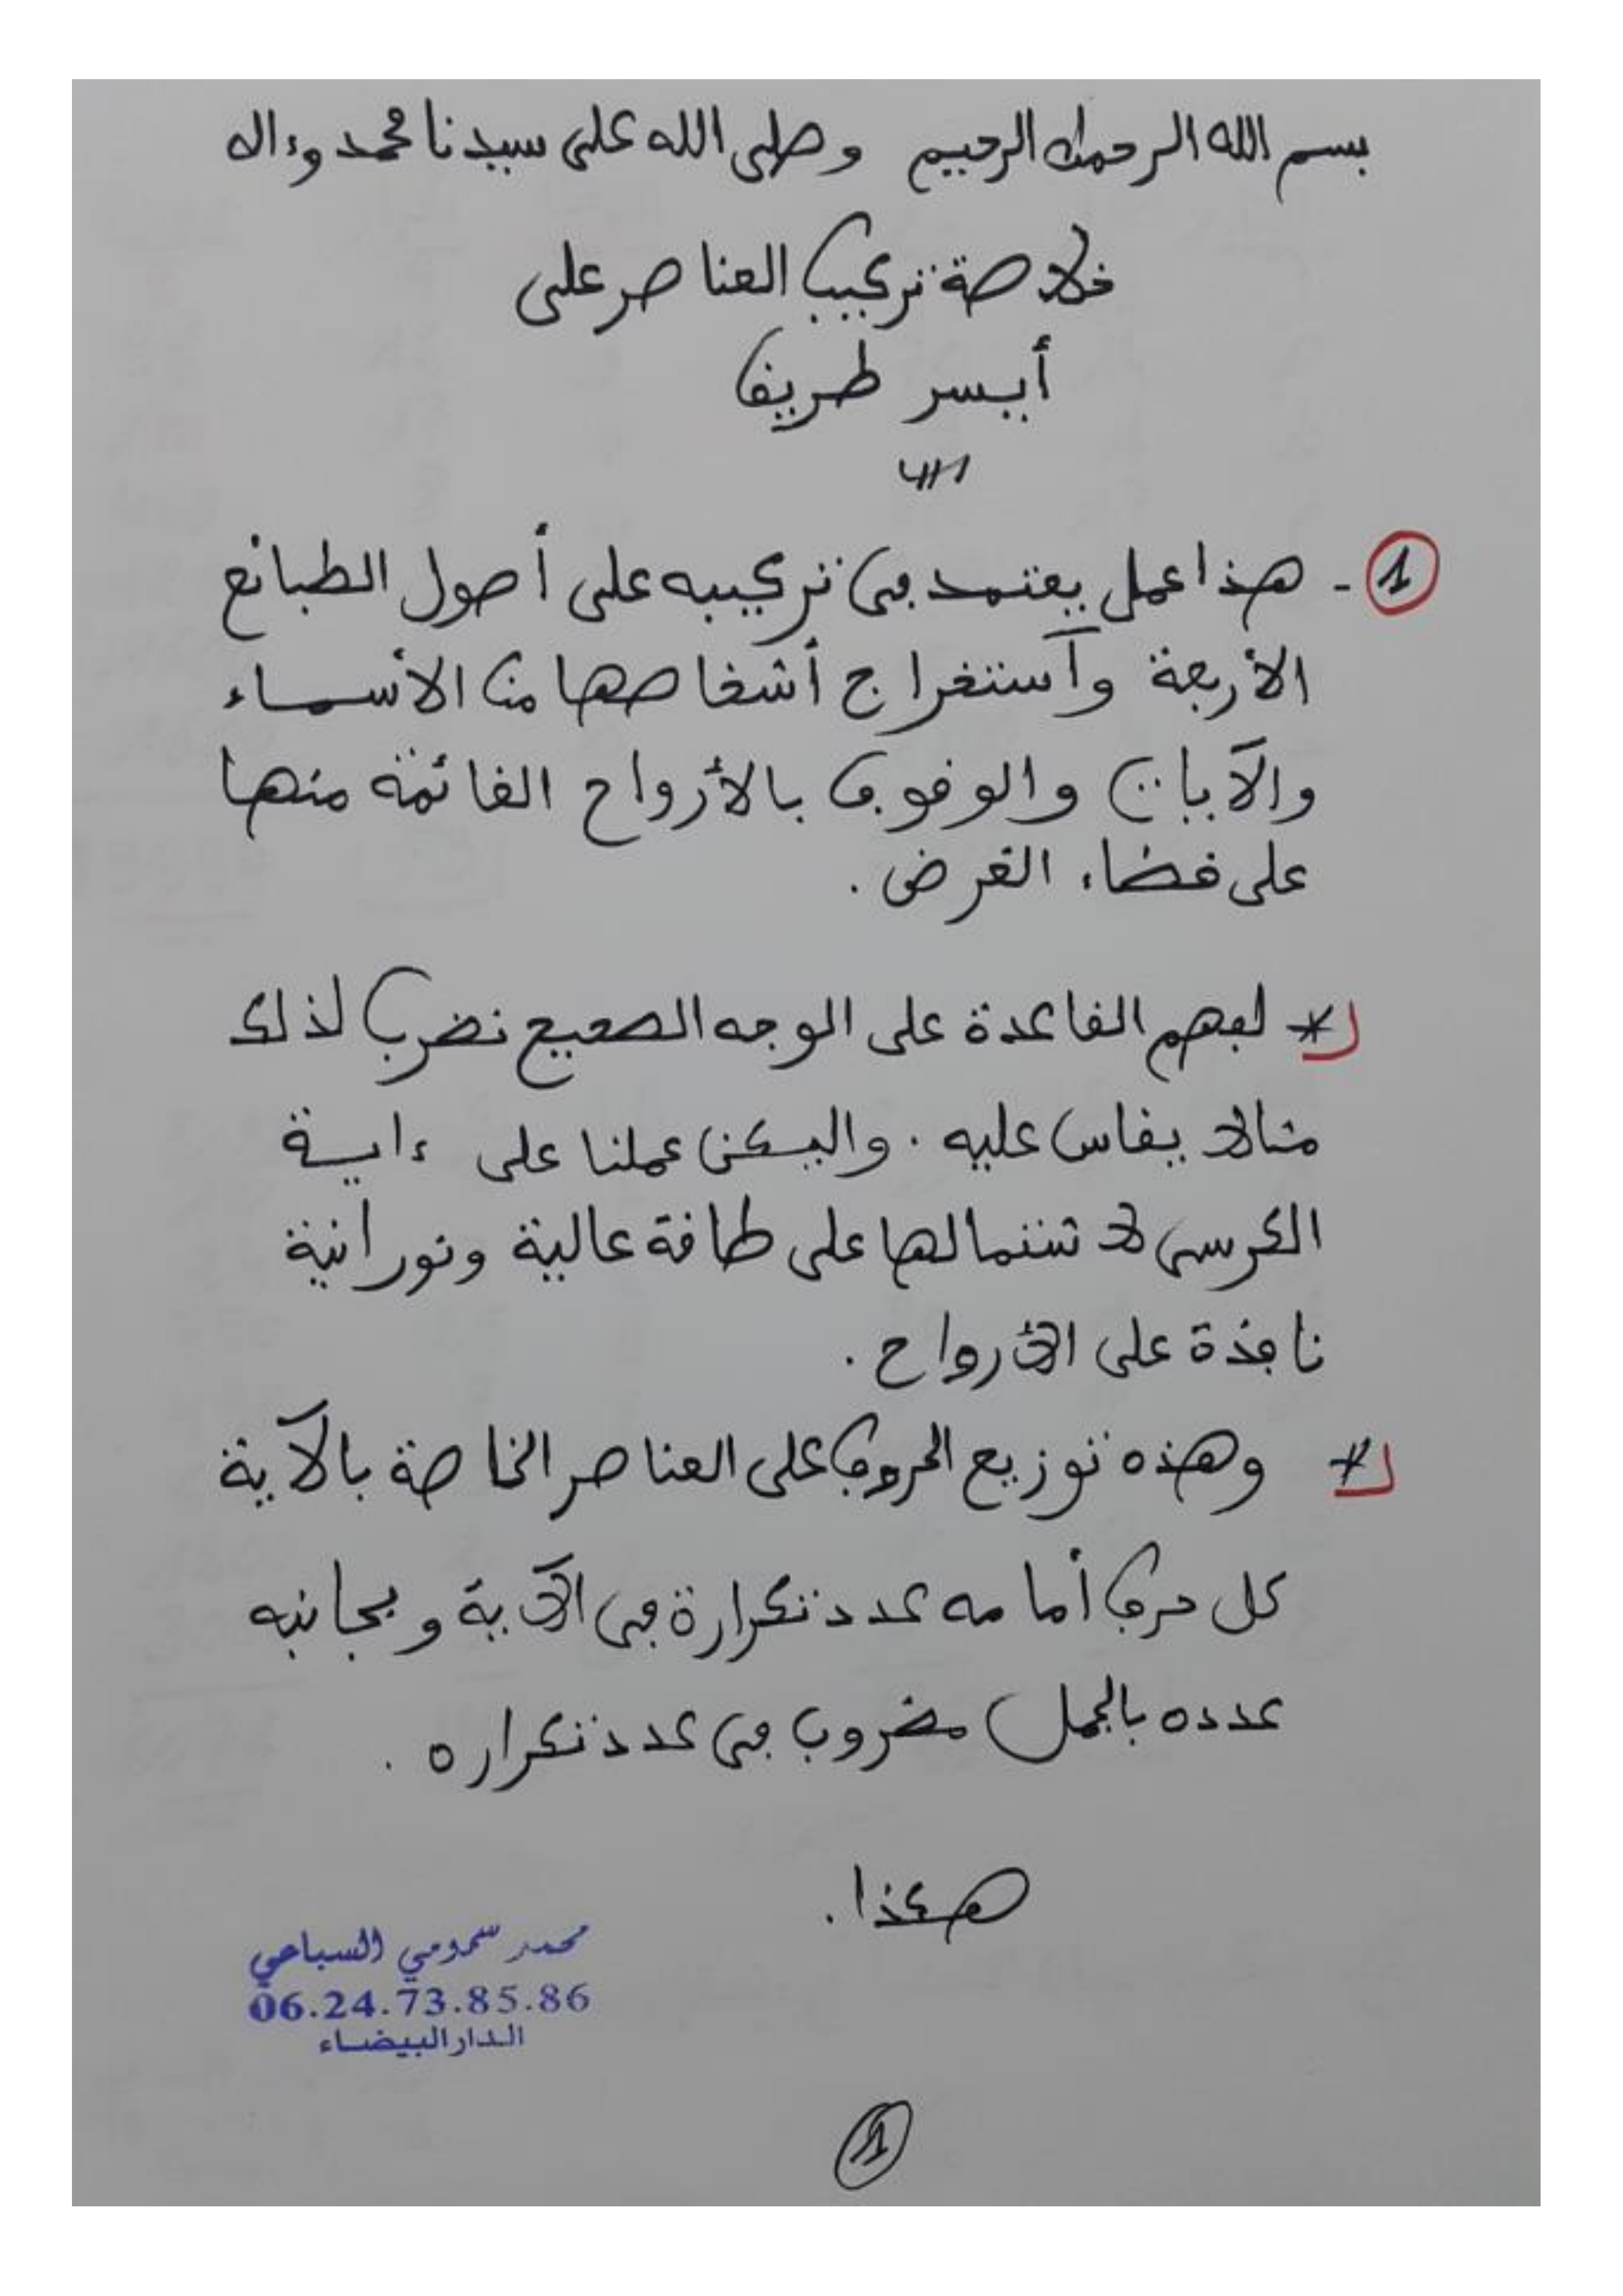 بسم الله الرحمن الرحيم وصلى الله على سيدنا محمد وءاله
خلاصة تركيب العناصر على
أيسر طريق
1 - هذا عمل يعتمد في تركيبه على أصول الطبائع
الأربعة وآستخراج أشخاصها من الأسماء
والآيات والوقوف بالأرواح القائمة منها
على قضاء الغرض .
* لفهم القاعدة على الوجه الصحيح نضرب لذلك
مثالا يقاس عليه . واليكن عملنا على ءاية
الكرسي لاشتمالها على طاقة عالية ونورانية
نافذة على الأرواح .
* وهذه توزيع الحروف على العناصر الخاصة بالآية
كل حرف أمامه عدد تكرارة في الآية وبجانبه
عدده بالجمل مضروب في عدد تكراره .
هكذا .
محمد سمومي السباعي
06.24.73.85.86
الدار البيضاء
1